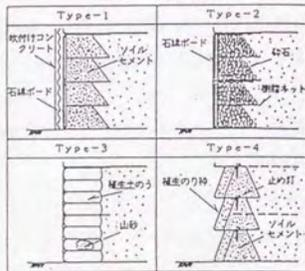 Type-1
吹付けコン
クリート
ソイル
セメント
石膏ボード
Type-2
石膏ボード
砕石
樹脂ネット
Type-3
植生土のう
山砂
Type-4
植生のり枠
止め釘
ソイル
セメント